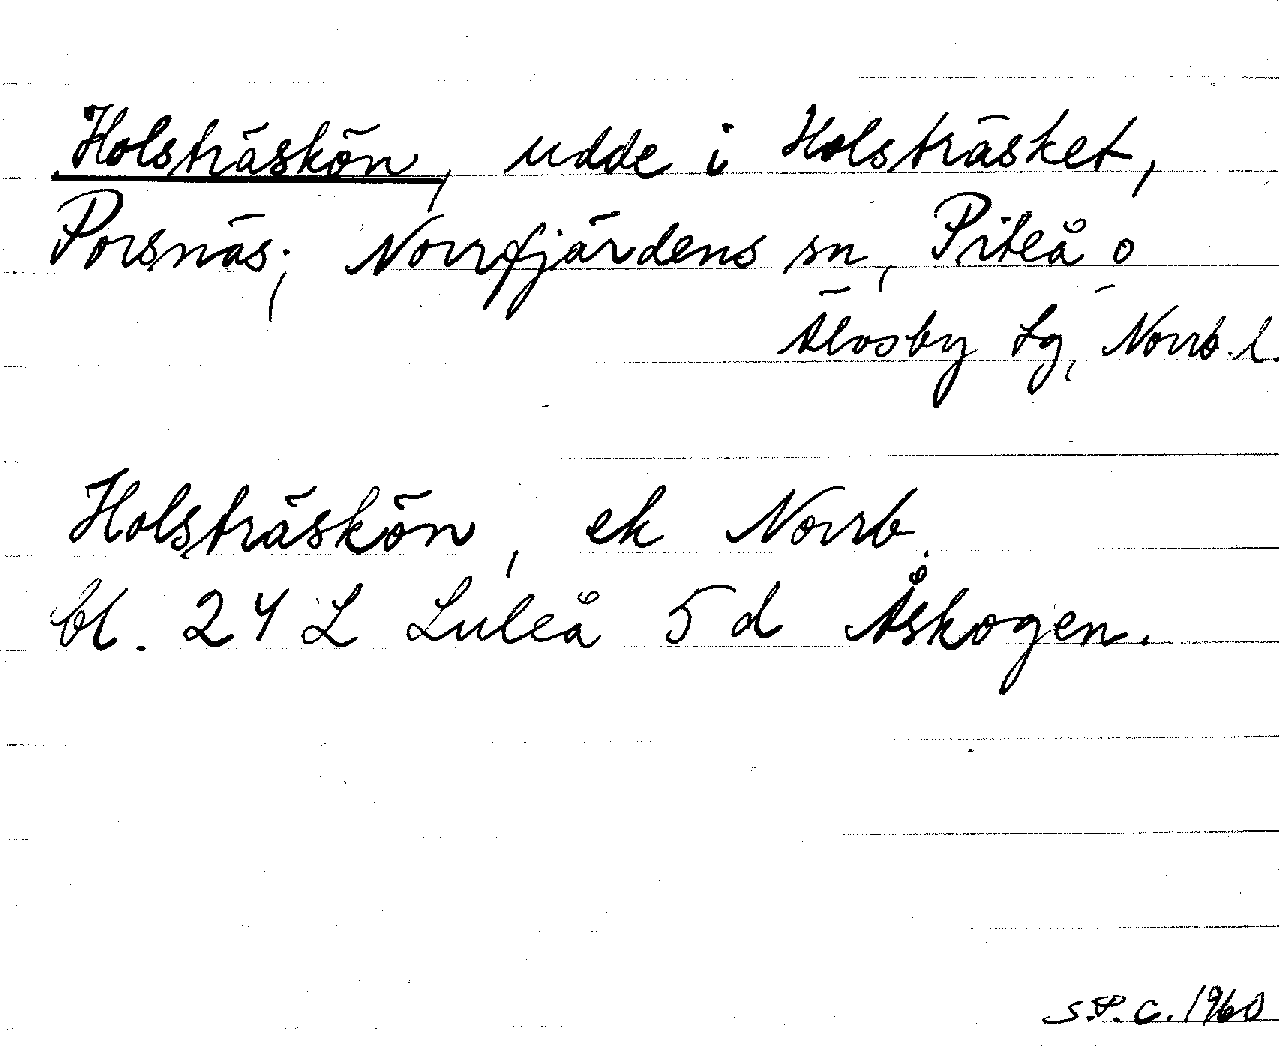 Holsträskön, udde i Holsträsket,
Porsnäs, Norrfjärdens sn, Piteå o
Älvsby tg, Norrb. l.
Holsträskön, ek Norrb.
bl. 24 L Luleå 5 d Åskogen.
S.P.C. 1960